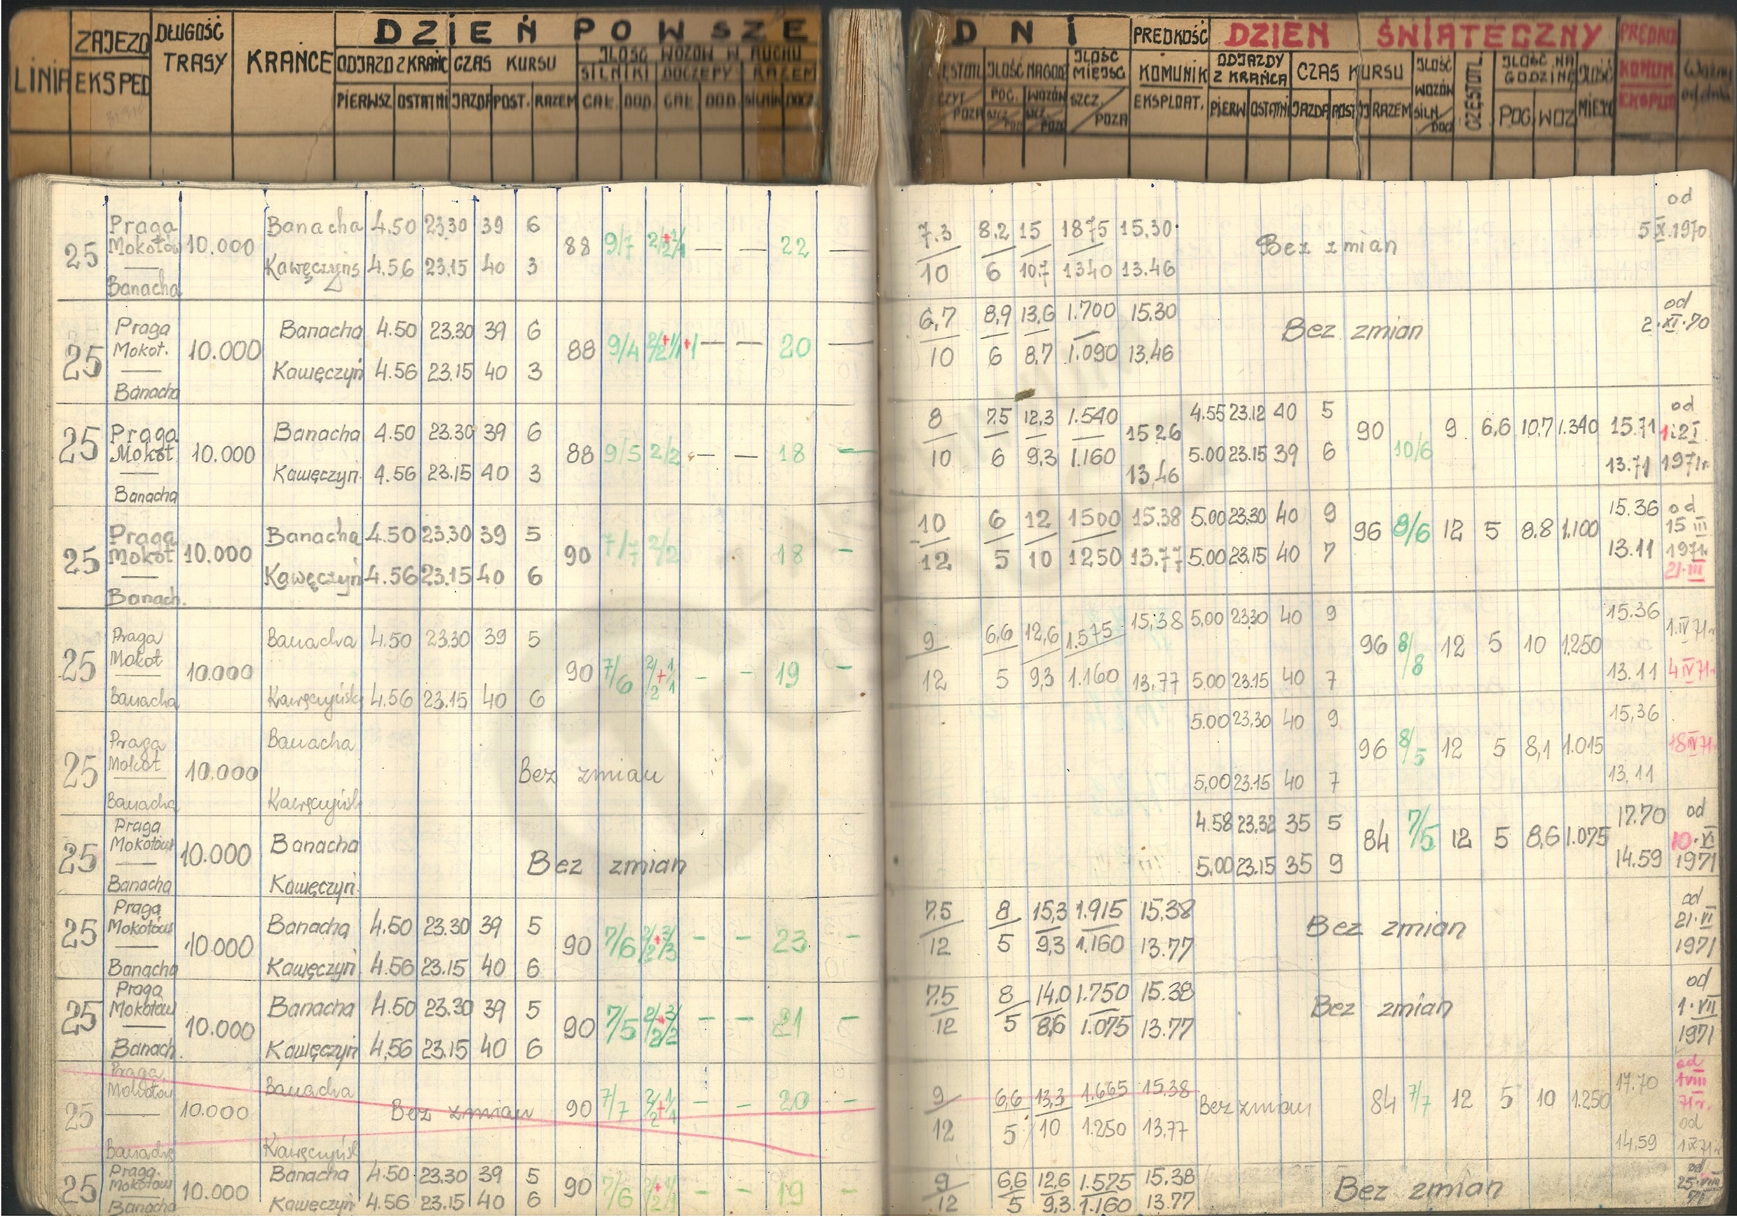 LINIA
ZAJEZD
EKSPED
DŁUGOŚĆ
TRASY
KRAŃCE
DZIEŃ POWSZE
ODJAZD Z KRAŃC
CZAS KURSU
ILOŚĆ WOZÓW W RUCHU
SILNIKI DOCZEPY RAZEM
PIERWSZ OSTATNI JAZDA POST. RAZEM CAŁ. DOD. CAŁ. DOD. SILNIK DOCZ.
DNI
PRĘDKOŚĆ
KOMUNIK
EKSPLOAT.
ILOŚĆ NA GOD
ILOŚĆ
MIEJSC
POC. WOZÓW
SZCZ.
POZA
DZIEŃ ŚWIĄTECZNY
ODJAZDY
Z KRAŃCA
CZAS KURSU
ILOŚĆ
WOZÓW
SILN
DOCZ
CZĘSTOTL.
ILOŚĆ NA
GODZINĘ
PIERW OSTATNI JAZDA POST RAZEM
POC. WOZ
ILOŚĆ
MIEJSC
PRĘDKO
KOMUN.
EKSPLO
Ważny
od dnia
25 Praga Mokotów Banacha 10.000 Banacha 4.50 23.30 39 6 88 9/7 — — 22 —
Kawęczyńs 4.56 23.15 40 3
7.3 8,2 15 1875 15,30 Bez zmian od 5 X.1970
10 6 10,7 1340 13.46
25 Praga Mokot. Banacha 10.000 Banacha 4.50 23.30 39 6 88 9/4 — — 20 —
Kawęczyń 4.56 23.15 40 3
6,7 8,9 13,6 1.700 15.30 Bez zmian od 2.XI.70
10 6 8,7 1.090 13.46
25 Praga Mokot Banacha 10.000 Banacha 4.50 23.30 39 6 88 9/5 2/2 — — 18 —
Kawęczyń. 4.56 23.15 40 3
8 7.5 12,3 1.540 15 26 4.55 23.12 40 5 90 10/6 9 6,6 10,7 1.340 15.71 od
10 6 9,3 1.160 13,46 5.00 23.15 39 6 13.71 1971r.
25 Praga Mokot Banach. 10.000 Banacha 4.50 23.30 39 5 90 7/7 2/2 18 -
Kawęczyń 4.56 23.15 40 6
10 6 12 1500 15.38 5.00 23.30 40 9 96 8/6 12 5 8.8 1.100 15.36 od 15 III
12 5 10 1250 13.77 5.00 23.15 40 7 13.11 1971r. 21.III
25 Praga Mokot Banacha 10.000 Banacha 4.50 23.30 39 5 90 7/6 2/2+1/1 - - 19 -
Kawęczyńsk 4.56 23.15 40 6
9 6,6 12,6 1.575 15,38 5,00 23,30 40 9 96 8/8 12 5 10 1.250 15.36 1.IV 71r.
12 5 9,3 1.160 13,77 5,00 23.15 40 7 13.11 4 IV 71r.
25 Praga Mokot Banacha 10.000 Banacha Bez zmian
Kawęczyńsk
5.00 23,30 40 9 96 8/5 12 5 8,1 1.015 15,36 18 IV 71r.
5,00 23.15 40 7 13,11
25 Praga Mokotów Banacha 10.000 Banacha Bez zmian
Kawęczyń.
4.58 23.32 35 5 84 7/5 12 5 8,6 1.075 17.70 od
5,00 23.15 35 9 14.59 1971
25 Praga Mokotów Banacha 10.000 Banacha 4.50 23.30 39 5 90 7/6 2/2+3/3 - - 23 -
Kawęczyń 4.56 23.15 40 6
7.5 8 15,3 1.915 15,38 Bez zmian od 21.VI
12 5 9,3 1.160 13.77 1971
25 Praga Mokotów Banach. 10.000 Banacha 4.50 23.30 39 5 90 7/5 - - 21 -
Kawęczyń 4,56 23.15 40 6
7.5 8 14.0 1.750 15.38 Bez zmian od 1.VII
12 5 8,6 1.075 13.77 1971
25 Praga Mokotów Banacha 10.000 Banacha Bez zmian 90 7/7 2/2+1/1 - - 20 -
Kawęczyńsk
9 6,6 13,3 1.665 15.38 Bez zmian 84 7/7 12 5 10 1.250 17.70 od 1 VIII 71r.
12 5 10 1.250 13,77 14,59 od
25 Praga. Mokotów Banacha 10.000 Banacha 4.50 23.30 39 5 90 7/6 - - 19 -
Kawęczyń. 4.56 23.15 40 6
9 6,6 12,6 1.575 15.38 Bez zmian od 25.VIII 71
12 5 9,3 1.160 13.77